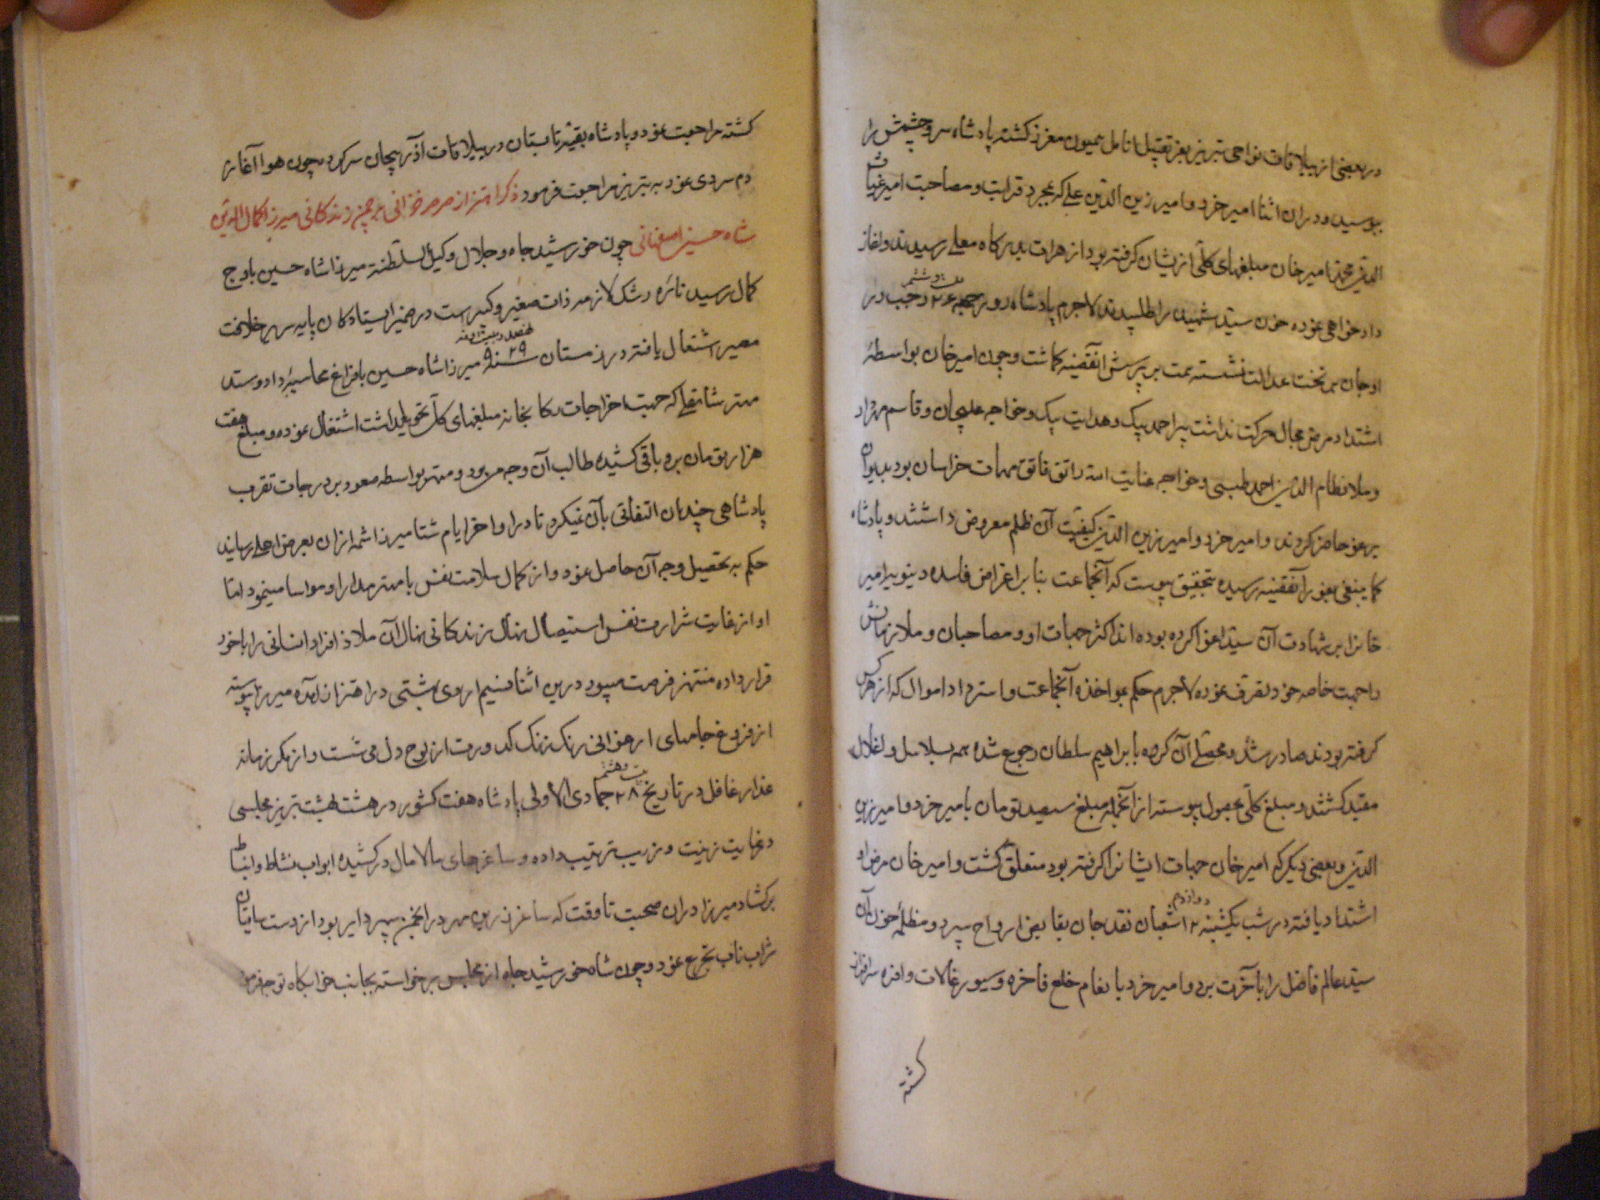 در بعضی از ییلاقات نواحی تبریز بعز تقبیل انامل همیون معزز کشته پادشاه سر و چشمش را
ببوسید و در ان اثنا امیر خرد و امیر زین الدین علی که بمجرد قرابت و مصاحبت امیر غیاث
الدین محمد امیر خان مبلغهای کلی از یشان کرفته بود از هرات بدرکاه معلی رسیدند و اغاز
داد خواهی نموده خون سید شهید را طلبیدند لاجرم پادشاه روز جمعه ۲۶ بیست و ششم رجب در
اوجان بر تخت عدالت نشسته همت بر پرسش انقضیه کماشت و چون امیر خان بواسطهٔ
اشتداد مرض مجال حرکت نداشت پیر احمد بیک و هدایت بیک و خواجه علیجان و قاسم مهرداد
و ملا نظام الدین احمد طبسی و خواجه عنایت الله راتق فاتق مهمات خراسان بود بدیوان
یرغو حاضر کردند و امیر خرد و امیر زین الدین کیفیت آن ظلم معروض داشتند و پادشاه
کما ینبغی بغور آنقضیه رسیده بتحقیق پیوست که آنجماعت بنا بر اغراض فاسده دینویه امیر
خانرا بر شهادت آن سید اغوا کرده بوده اند اکثر جهات او و مصاحبان و ملازمانش
را جهت خاصه خود تصرف نموده لاجرم حکم بمواخذه آنجماعت و استرداد اموال که از هر کس
کرفته بودند صادر شد و محصلی آن کروه بابراهیم سلطان رجوع شده همه بسلاسل و اغلال
مقید کشتند و مبلغ کلی بحصول پیوسته از انجمله مبلغ سیصد تومان بامیر خرد و امیر زین
الدین و بعضی دیکر که امیر خان جهات ایشانرا کرفته بود متعلق کشت و امیر خان مرض او
اشتداد یافته در شب یکشنبه ۱۲ دوازدهم شعبان نقد جان بقابض ارواح سپرد و مظلمهٔ خون آن
سید عالم فاضل را باخرت برد و امیر خرد بانعام خلع فاخره و سیورغالات وافره سرافراز
کشته
کشته مراجعت نمود و پادشاه بقیهٔ تابستان در ییلاقات آذربیجان سر کرد و چون هوا آغاز
دم سردی نمود به تبریز مراجعت فرمود ذکر اهتزاز صرصر خزانی بر چمن زندکانی میرزا کمال الدین
شاه حسین اصفهانی چون خورشید جاه و جلال وکیل السلطنة میرزا شاه حسین باوج
کمال رسید نائره رشک لازمه ذات صغیر و کبیرست در ضمیر ایستادکان پایه سریر خلافت
مصیر اشتعال یافته در زمستان سنه ۹۲۹ نهصد و بیست و نه میرزا شاه حسین بافراغ محاسبهٔ داد و ستد
مهتر شاهقلی که جهت اخراجات رکابخانه مبلغهای کلی تحویلداشت اشتغال نموده و مبلغ هفت
هزار تومان برو باقی کشیده طالب آن وجه می بود و مهتر بواسطه صعود بر درجات تقرب
پادشاهی چندان التفاتی بآن نمیکرد تا در اواخر ایام شتا میرزا شمهٔ از ان بعرض اعلی رسانید
حکم به تحصیل وجه آن حاصل نمود و از کمال سلامت نفس با مهتر مدارا و مواسا مینمود اما
او از غایت شرارت نفس استیصال نهال زندکانی نهال آن ملاذ افراد انسانی را با خود
قرار داده منتهز فرصت میبود درین اثنا نسیم اردی بهشتی در اهتزاز آمده میرزا پیوسته
از فروغ جامهای ارغوانی رنک زنک کدورت از لوح دل می شست و از مکر زمانه
غدار غافل در تاریخ ۲۸ بیست و هشتم جمادی الاولی پادشاه هفت کشور در هشت بهشت تبریز مجلسی
در غایت زینت و زیب ترتیب داده و ساغرهای مالامال در کشیده ابواب نشاط و انبساط
برکشاد میرزا در ان صحبت تا وقت که ساغر زرین مهر در انجمن سپهر دایر بود از دست ساقیان
شراب ناب تجرع نمود و چون شاه خورشید جاه از مجلس برخواسته بجانب خوابکاه توجه فرمود